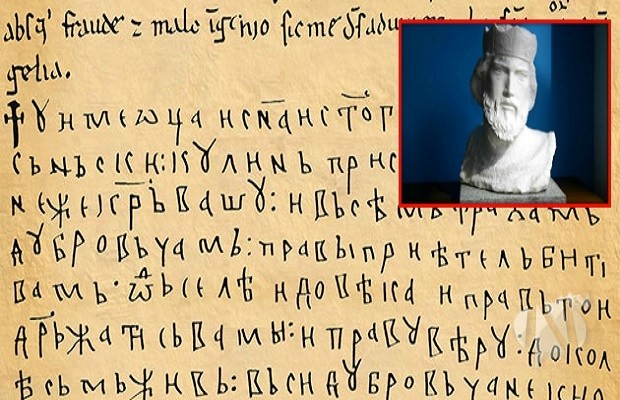 absq; fraude z malo igenio sic me ds adiu
gelia.
† У име ѡца и сн҃а и сто҃г
сьньски: кулинь прис
неже крьвашу: и вьсѣмь граћамь
дубровьчамь: правы приѣтель бити
вамь · ѿ ьселѣ и довѣка и правь гои
дрьжати сь вамы: и праву вѣру · докол
ѣ сьмь живь: вьси дубровьчане